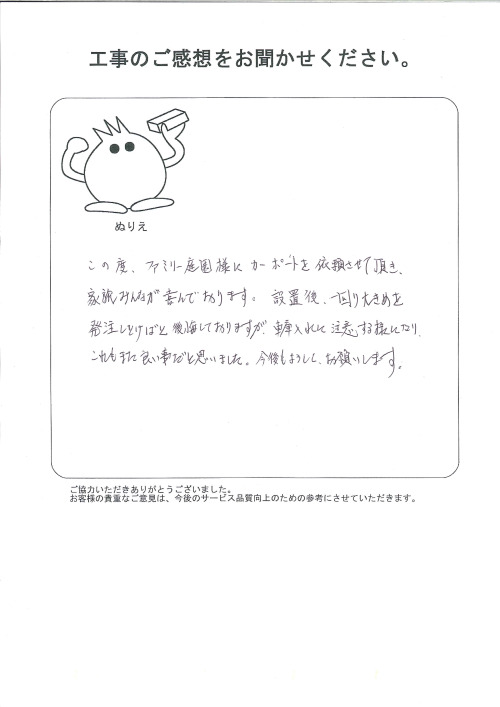 工事のご感想をお聞かせください。
ぬりえ
この度、ファミリー庭園様にカーポートを依頼させて頂き、
家族みんなが喜んでおります。設置後、一回り大きめを
発注しとけばと後悔しておりますが、車庫入れに注意する様になり、
これもまた良い事だと思いました。今後もよろしく、お願いします。
ご協力いただきありがとうございました。
お客様の貴重なご意見は、今後のサービス品質向上のための参考にさせていただきます。